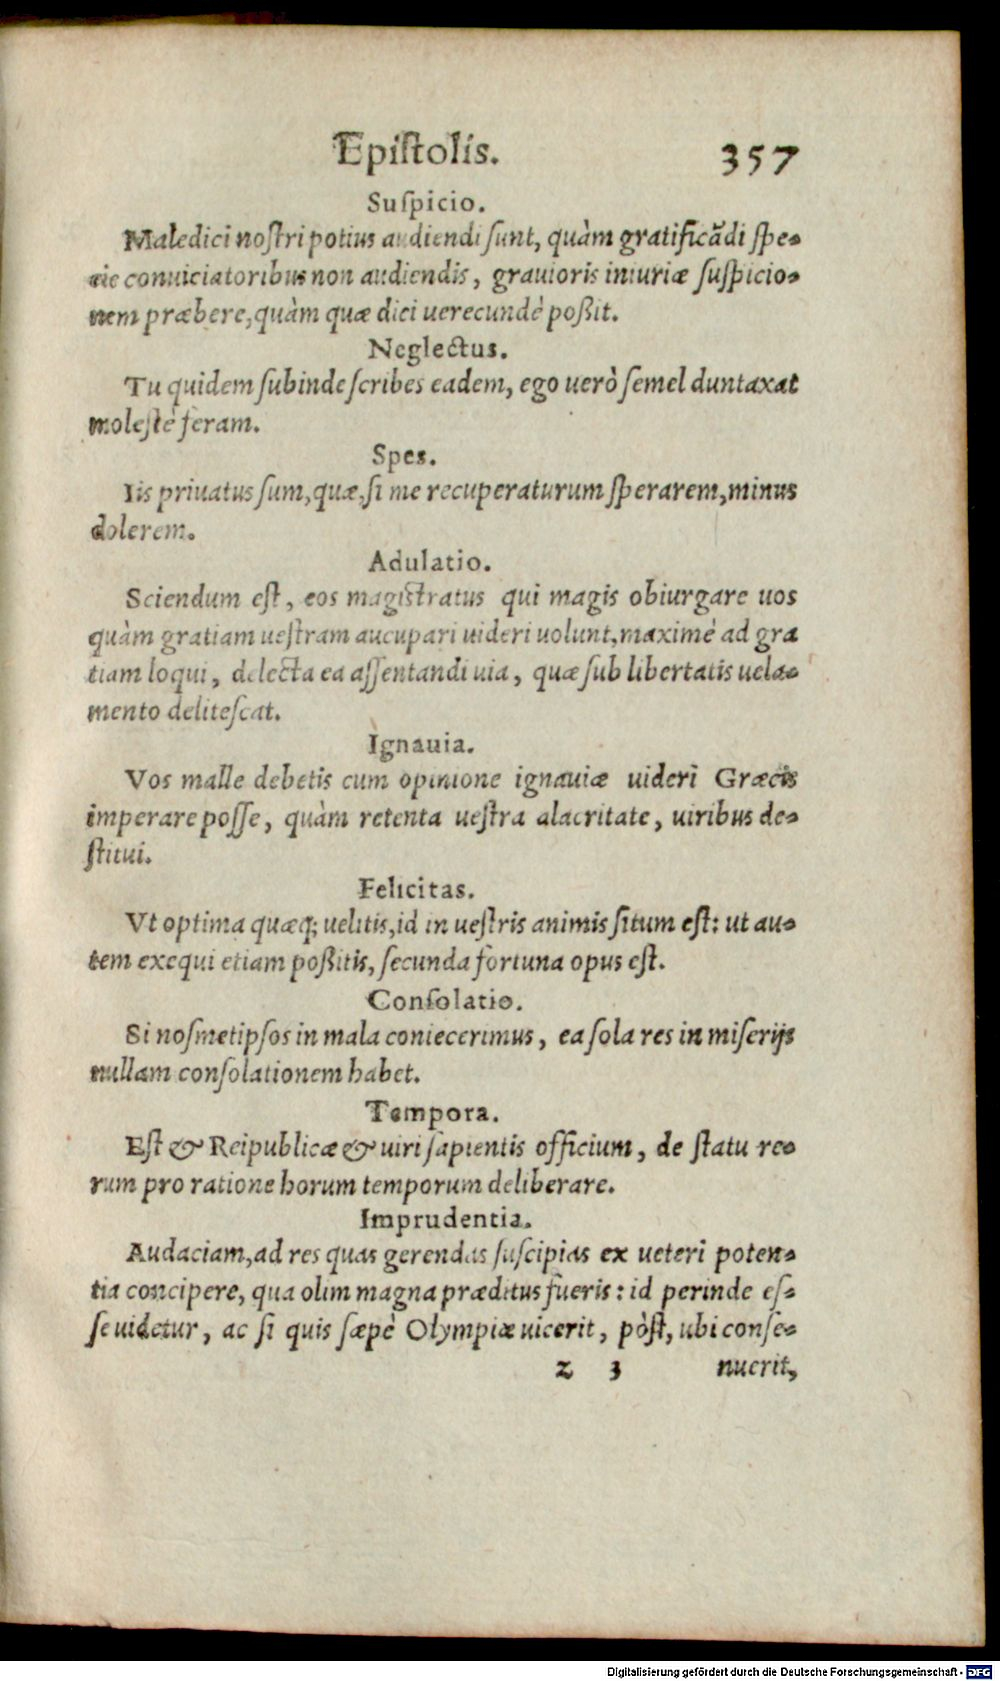 Epistolis. 357
Suspicio.
Maledici nostri potius audiendi sunt, quàm gratificãdi spe-
cie conuiciatoribus non audiendis, grauioris iniuriæ suspicio-
nem præbere, quàm quæ dici uerecundè poßit.
Neglectus.
Tu quidem subinde scribes eadem, ego uerò semel duntaxat
molestè feram.
Spes.
Iis priuatus sum, quæ, si me recuperaturum sperarem, minus
dolerem.
Adulatio.
Sciendum est, eos magistratus qui magis obiurgare uos
quàm gratiam uestram aucupari uideri uolunt, maximè ad gra
tiam loqui, delecta ea assentandi uia, quæ sub libertatis uela-
mento delitescat.
Ignauia.
Vos malle debetis cum opinione ignauiæ uideri Græcis
imperare posse, quàm retenta uestra alacritate, uiribus de-
stitui.
Felicitas.
Vt optima quæq; uelitis, id in uestris animis situm est: ut au-
tem exequi etiam poßitis, secunda fortuna opus est.
Consolatio.
Si nosmetipsos in mala coniecerimus, ea sola res in miserijs
nullam consolationem habet.
Tempora.
Est & Reipublicæ & uiri sapientis officium, de statu re-
rum pro ratione horum temporum deliberare.
Imprudentia.
Audaciam, ad res quas gerendas suscipias ex ueteri poten-
tia concipere, qua olim magna præditus fueris: id perinde es-
se uidetur, ac si quis sæpè Olympiæ uicerit, pòst, ubi conse-
z 3 nuerit,
Digitalisierung gefördert durch die Deutsche Forschungsgemeinschaft - DFG